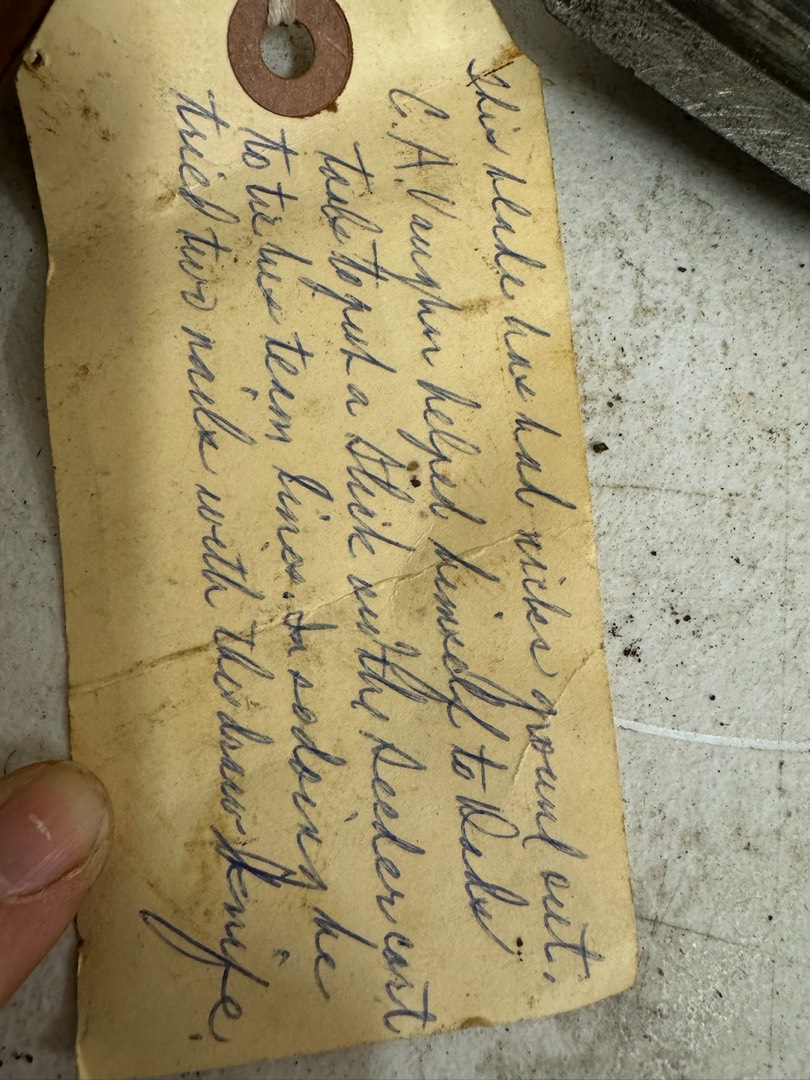 This blade has had nicks ground out.
C. A. Vaughn helped himself to Dads
tools to put a stick on the Seeder cart
to tie his team lines. In so doing he
tried two nails with the draw knife.